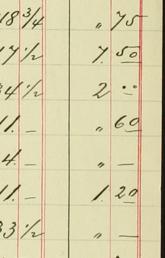 18 3/4 " 75
17 1/2 7. 50
34 1/2 2 ..
11. — " 60
4. — " —
11. — 1. 20
33 1/2 " —